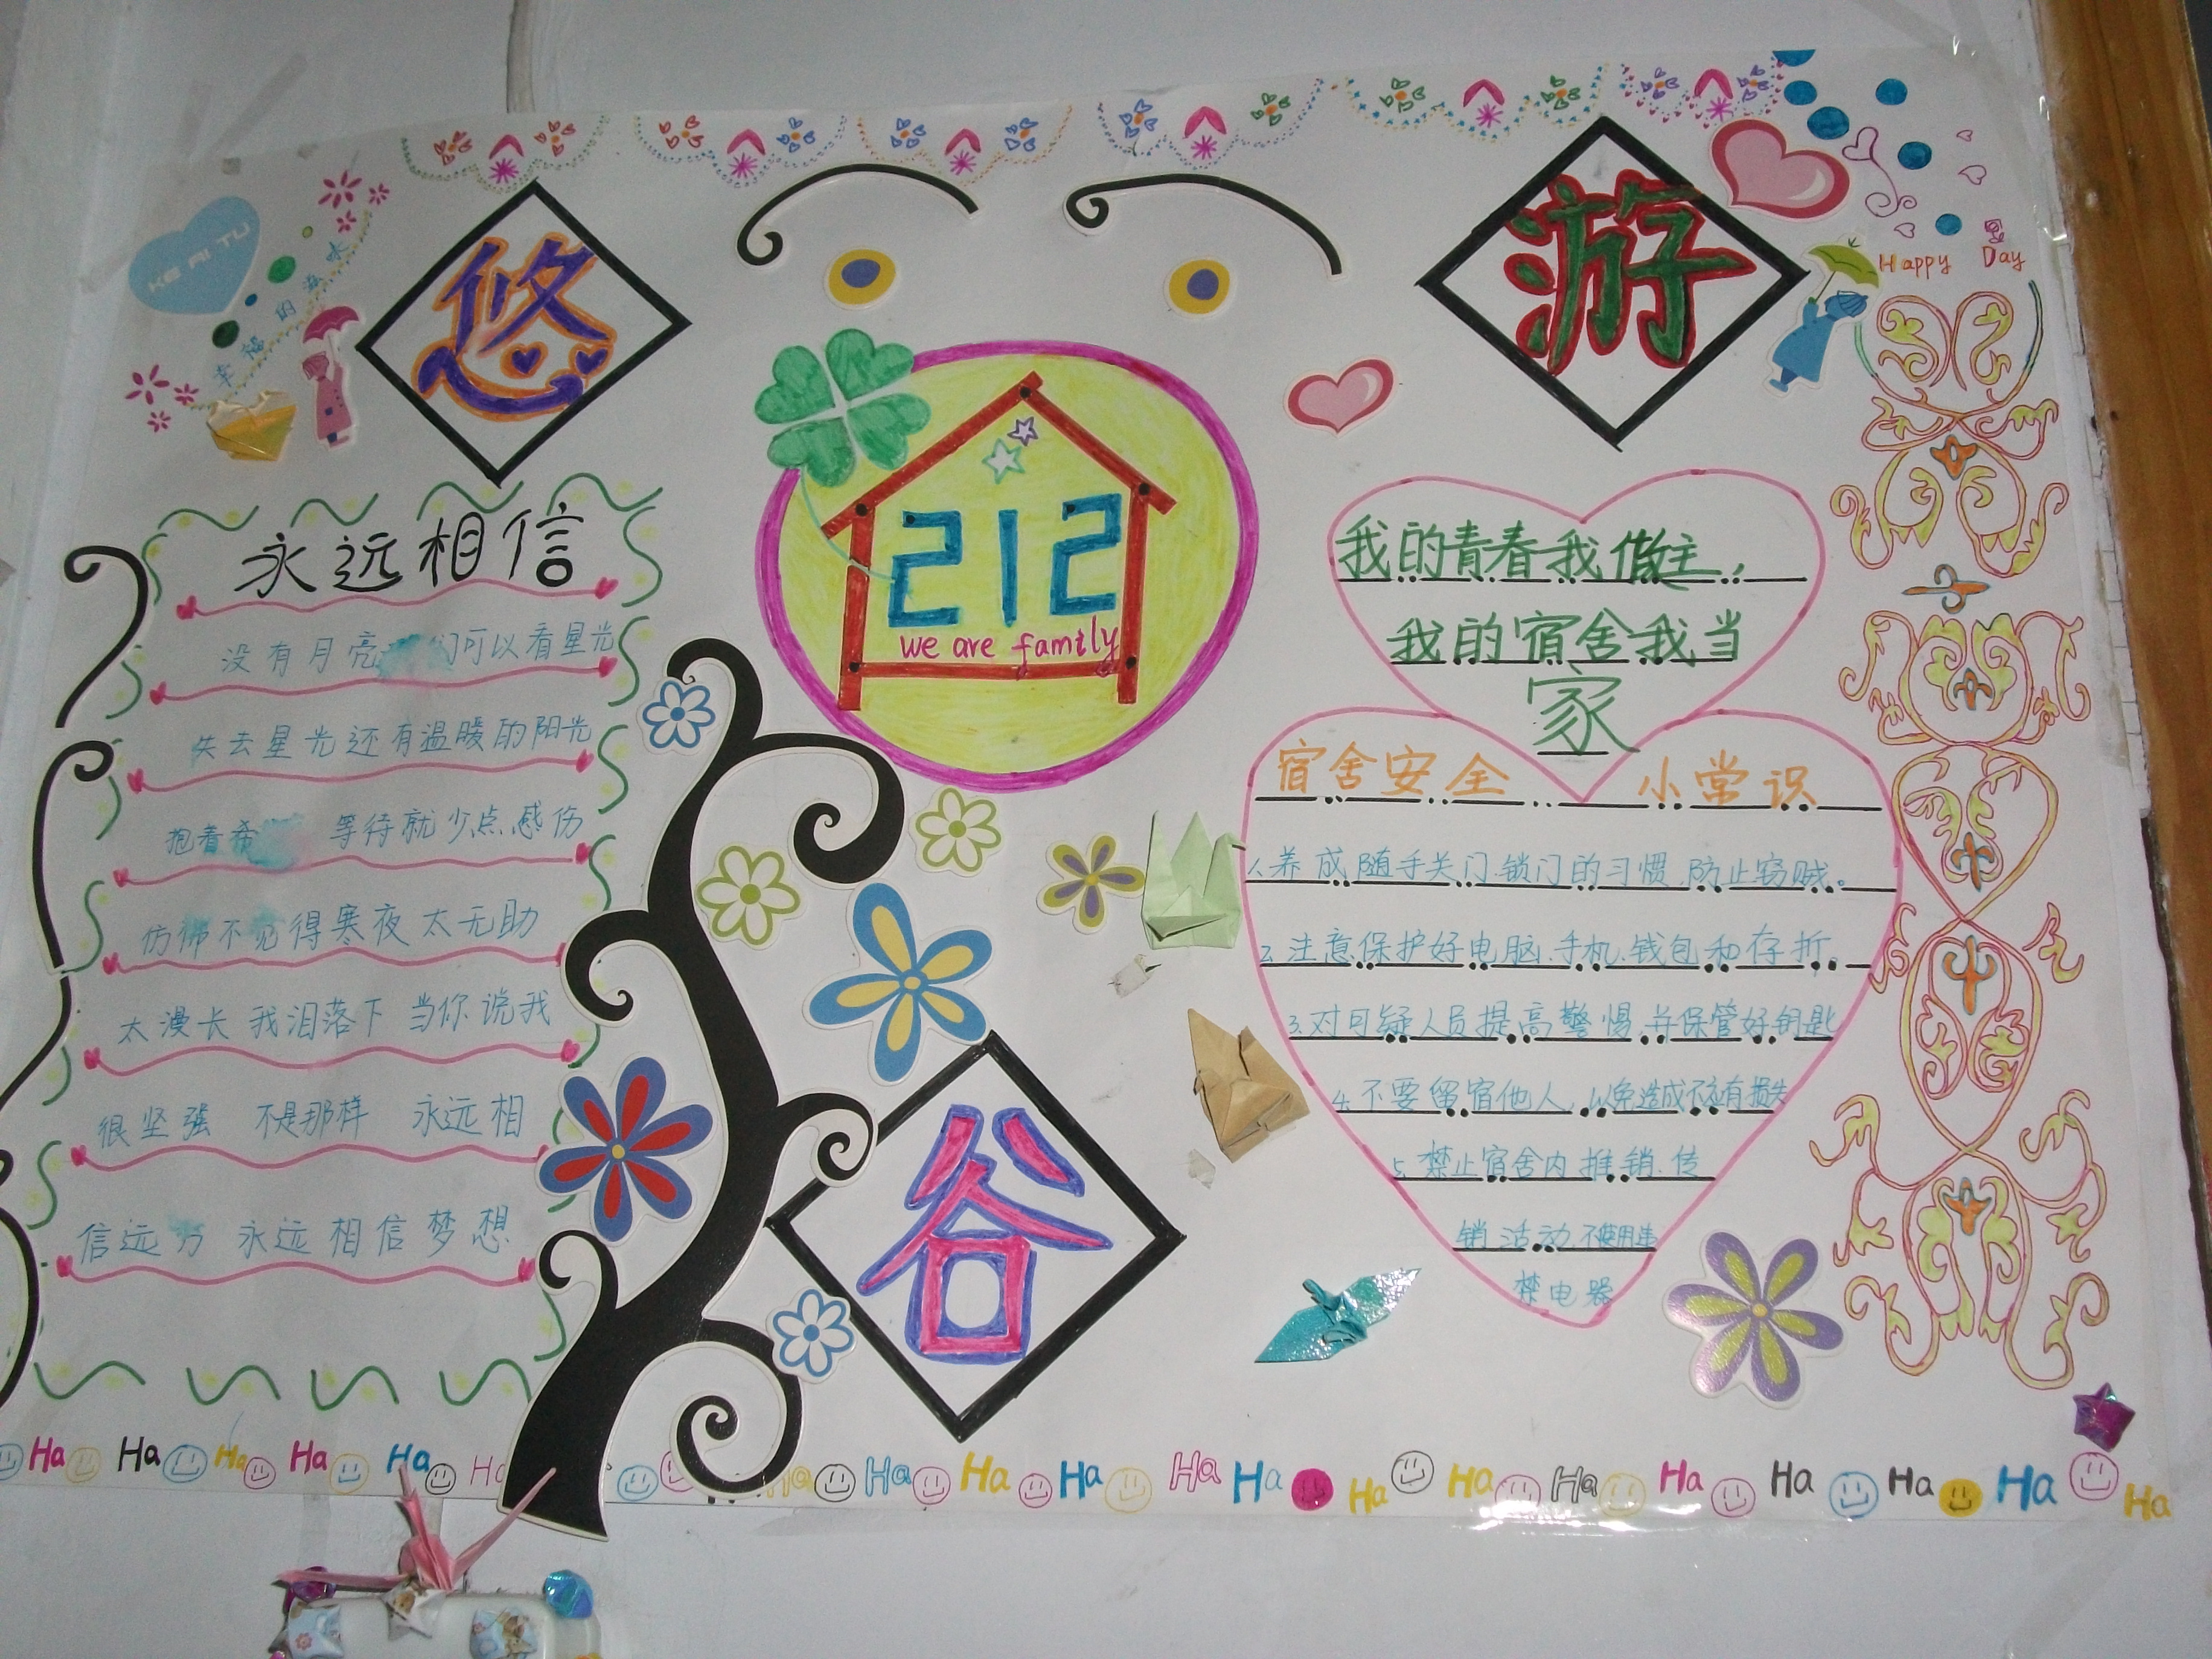 KE AI TU
幸福的海水
悠
游
谷
Happy Day
212
we are family
永远相信
没有月亮 们可以看星光
失去星光还有温暖的阳光
抱着希 等待就少点感伤
仿佛不 得寒夜太无助
太漫长 我泪落下 当你说我
很坚强 不是那样 永远相
信远方 永远相信梦想
我的青春我做主，
我的宿舍我当
家
宿舍安全 小常识
1.养成随手关门.锁门的习惯.防止窃贼。
2.注意保护好电脑.手机.钱包和存折。
3.对可疑人员提高警惕.并保管好钥匙
4.不要留宿他人，以免造成不应有损失
5.禁止宿舍内推销.传
销活动.不使用违
禁电器
Ha Ha Ha Ha Ha Ha Ha Ha Ha Ha Ha Ha Ha Ha Ha Ha Ha Ha Ha Ha